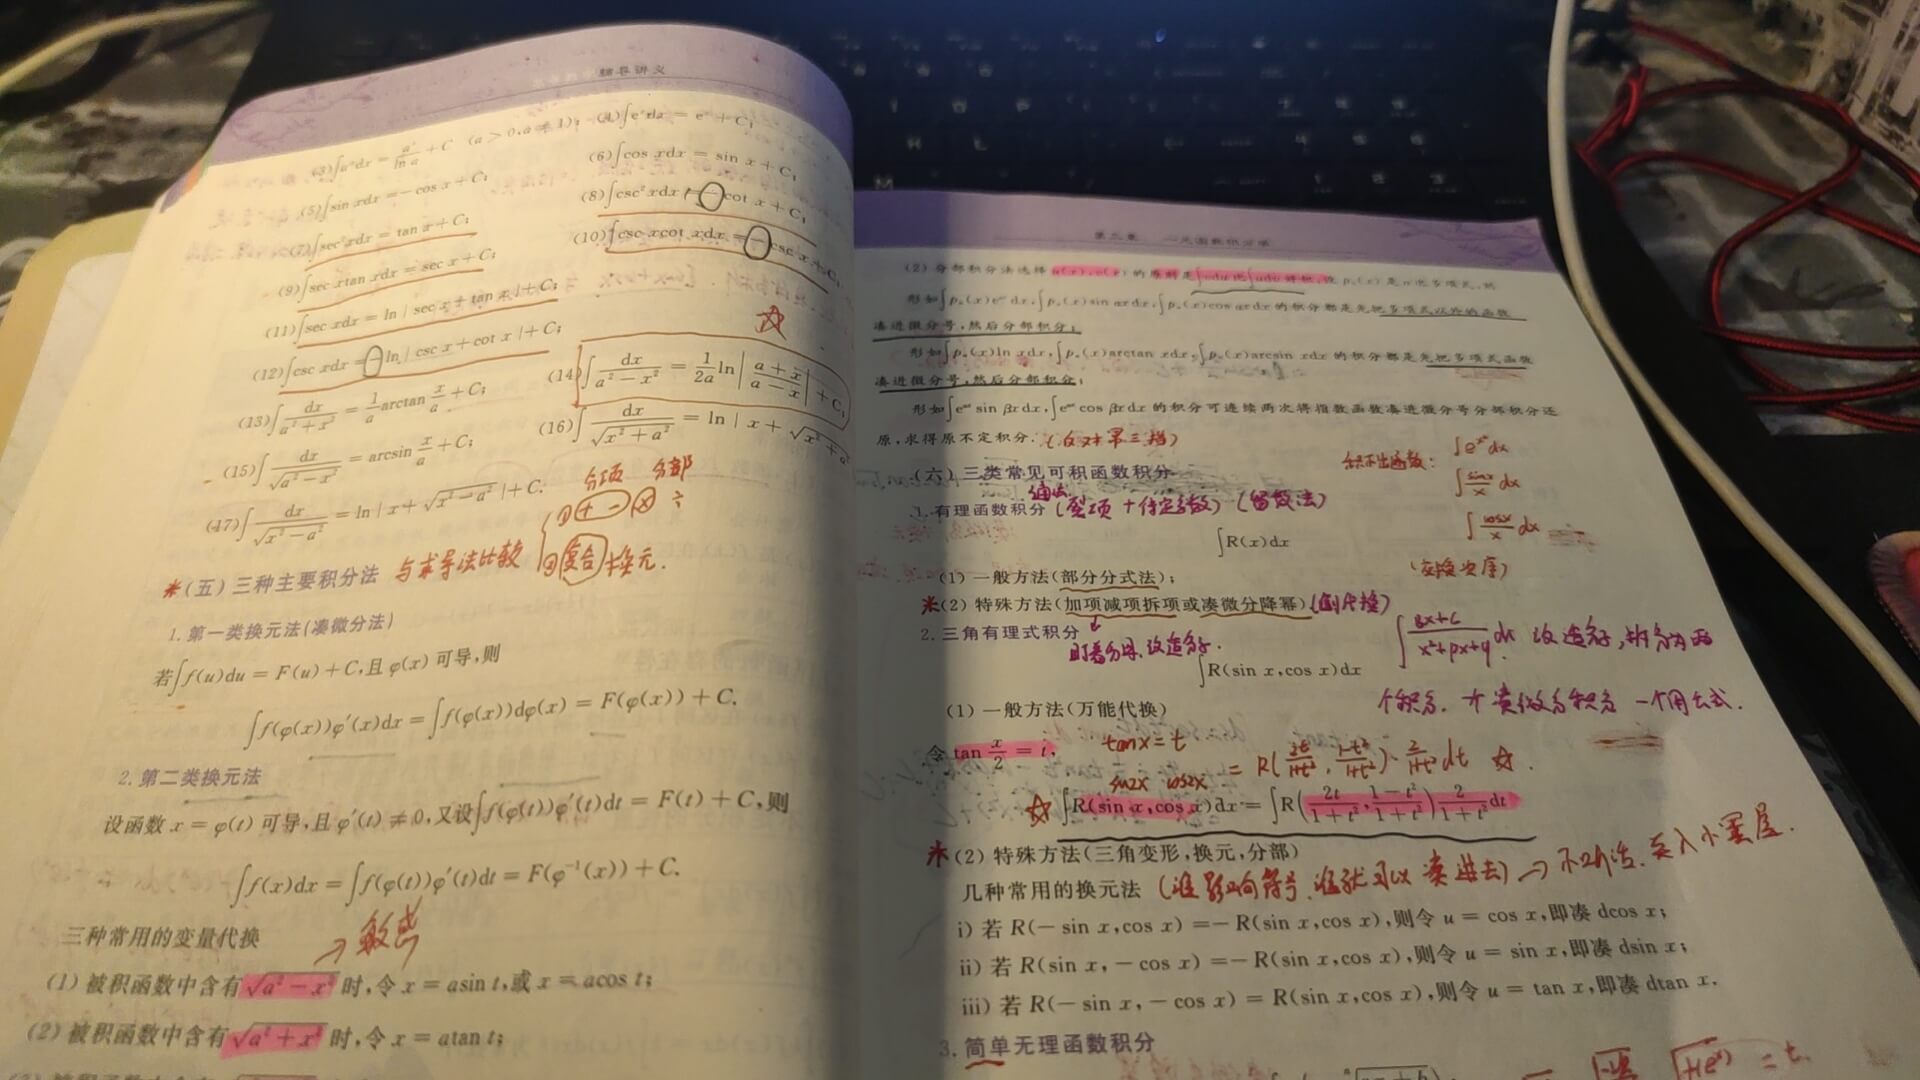 辅导讲义
(3)∫aˣdx = aˣ/ln a + C (a > 0, a ≠ 1); (4)∫eˣdx = eˣ + C;
(5)∫sin xdx = − cos x + C; (6)∫cos xdx = sin x + C;
(7)∫sec²xdx = tan x + C; (8)∫csc²xdx = − cot x + C;
(9)∫sec xtan xdx = sec x + C; (10)∫csc xcot xdx = − csc x + C;
(11)∫sec xdx = ln | sec x + tan x | + C;
(12)∫csc xdx = − ln | csc x + cot x | + C;
(13)∫dx/(a² + x²) = 1/a arctan x/a + C; (14)∫dx/(a² − x²) = 1/2a ln|(a + x)/(a − x)| + C;
(15)∫dx/√(a² − x²) = arcsin x/a + C; (16)∫dx/√(x² + a²) = ln | x + √(x² + a²
(17)∫dx/√(x² − a²) = ln | x + √(x² − a²) | + C.
分项 分部
① + − × ÷
*(五) 三种主要积分法 与求导法比较 ②复合 换元.
1. 第一类换元法(凑微分法)
若∫f(u)du = F(u) + C,且 φ(x) 可导,则
∫f(φ(x))φ′(x)dx = ∫f(φ(x))dφ(x) = F(φ(x)) + C.
2. 第二类换元法
设函数 x = φ(t) 可导,且 φ′(t) ≠ 0,又设∫f(φ(t))φ′(t)dt = F(t) + C,则
∫f(x)dx = ∫f(φ(t))φ′(t)dt = F(φ⁻¹(x)) + C.
三种常用的变量代换 → 敏感
(1) 被积函数中含有√(a² − x²) 时,令 x = asin t,或 x = acos t;
(2) 被积函数中含有√(a² + x²) 时,令 x = atan t;
第三章 一元函数积分学
(2) 分部积分法选择 u(x),v(x) 的原则是∫vdu 比∫udv 好积,设 pₙ(x) 是 n 次多项式,则
形如∫pₙ(x)e^αx dx,∫pₙ(x)sin αxdx,∫pₙ(x)cos αxdx 的积分都是先把多项式以外的函数
凑进微分号,然后分部积分;
形如∫pₙ(x)ln xdx,∫pₙ(x)arctan xdx,∫pₙ(x)arcsin xdx 的积分都是先把多项式函数
凑进微分号,然后分部积分;
形如∫e^αx sin βxdx,∫e^αx cos βxdx 的积分可连续两次将指数函数凑进微分号分部积分还
原,求得原不定积分. (反对幂三指)
积不出函数: ∫e^x² dx
∫sinx/x dx
∫cosx/x dx
(交换次序)
(六) 三类常见可积函数积分
通法
1. 有理函数积分 (裂项 + 待定参数) (留数法)
∫R(x)dx
(1) 一般方法(部分分式法);
*(2) 特殊方法(加项减项拆项或凑微分降幂) (倒代换)
2. 三角有理式积分
盯着分母,改造分子.
∫R(sin x,cos x)dx
∫(Bx+C)/(x²+px+q) dx 改造分子,拆分为两
个积分. 一个凑微分积分 一个用公式.
(1) 一般方法(万能代换)
令 tan x/2 = t,
tanx = t
sin2x cos2x = R(2t/(1+t²), (1-t²)/(1+t²))·2/(1+t²) dt ☆.
☆ ∫R(sin x,cos x)dx = ∫R(2t/(1 + t²), (1 − t²)/(1 + t²)) 2/(1 + t²) dt
*(2) 特殊方法(三角变形,换元,分部)
几种常用的换元法 (谁影响符号,谁就可以凑进去)
i) 若 R(− sin x,cos x) =− R(sin x,cos x),则令 u = cos x,即凑 dcos x;
ii) 若 R(sin x,− cos x) =− R(sin x,cos x),则令 u = sin x,即凑 dsin x;
iii) 若 R(− sin x,− cos x) = R(sin x,cos x),则令 u = tan x,即凑 dtan x.
3. 简单无理函数积分